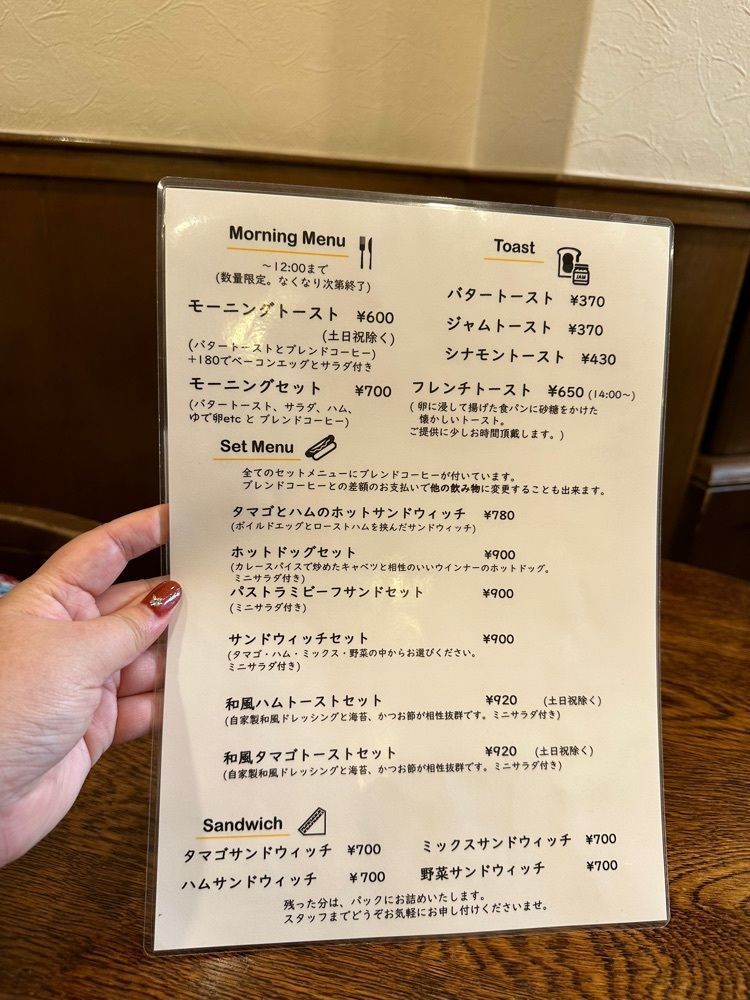 Morning Menu
～12:00まで
(数量限定。なくなり次第終了)
モーニングトースト ¥600
(土日祝除く)
(バタートーストとブレンドコーヒー)
+180でベーコンエッグとサラダ付き
モーニングセット ¥700
(バタートースト、サラダ、ハム、
ゆで卵etc と ブレンドコーヒー)
Toast
JAM
バタートースト ¥370
ジャムトースト ¥370
シナモントースト ¥430
フレンチトースト ¥650 (14:00～)
( 卵に浸して揚げた食パンに砂糖をかけた
懐かしいトースト。
ご提供に少しお時間頂戴します。)
Set Menu
全てのセットメニューにブレンドコーヒーが付いています。
ブレンドコーヒーとの差額のお支払いで他の飲み物に変更することも出来ます。
タマゴとハムのホットサンドウィッチ ¥780
(ボイルドエッグとローストハムを挟んだサンドウィッチ)
ホットドッグセット ¥900
(カレースパイスで炒めたキャベツと相性のいいウインナーのホットドッグ。
ミニサラダ付き)
パストラミビーフサンドセット ¥900
(ミニサラダ付き)
サンドウィッチセット ¥900
(タマゴ・ハム・ミックス・野菜の中からお選びください。
ミニサラダ付き)
和風ハムトーストセット ¥920 (土日祝除く)
(自家製和風ドレッシングと海苔、かつお節が相性抜群です。ミニサラダ付き)
和風タマゴトーストセット ¥920 (土日祝除く)
(自家製和風ドレッシングと海苔、かつお節が相性抜群です。ミニサラダ付き)
Sandwich
タマゴサンドウィッチ ¥700
ハムサンドウィッチ ¥700
ミックスサンドウィッチ ¥700
野菜サンドウィッチ ¥700
残った分は、パックにお詰めいたします。
スタッフまでどうぞお気軽にお申し付けくださいませ。